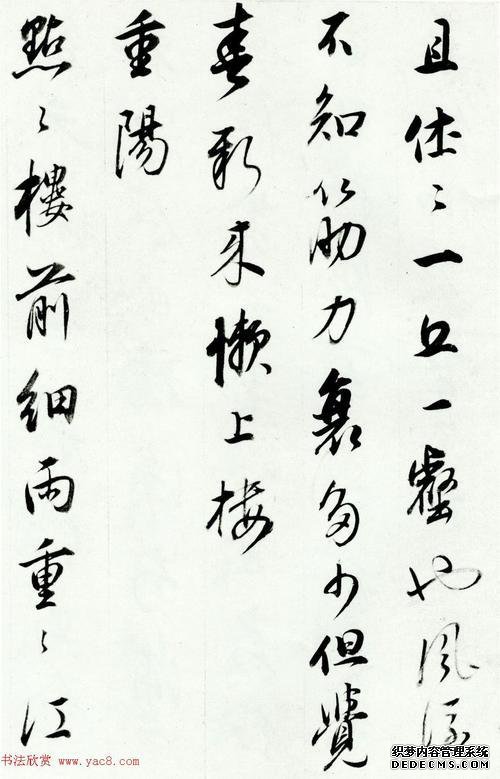 且休〻一丘一壑也風流
不知筋力衰多少但覺
春新来懶上樓
重陽
點〻樓前細雨重〻江
书法欣赏 www.yac8.com
织梦内容管理系统
DEDECMS.COM